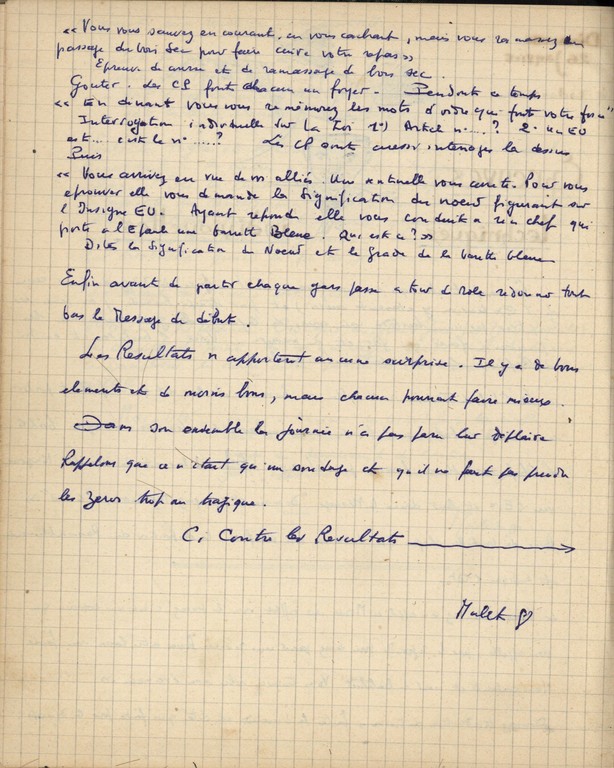 « Vous vous sauvez en courant, en vous cachant, mais vous ramassez au
passage du bois sec pour faire cuire votre repas »
Epreuve de course et de ramassage de bois sec.
Gouter. Les CP font chacun un foyer. Pendant ce temps
« En dinant vous vous remémorez les mots d'ordre qui font votre force"
Interrogation individuelle sur La Loi 1°) Article n°....? 2° un EU
est... c'est le n° .....? Les CP sont aussi interrogés la dessus
Puis
« Vous arrivez en vue de vos alliés. Une sentinelle vous arrete. Pour vous
eprouver elle vous demande la Signification du noeud figurant sur
l'Insigne EU. Ayant repondu elle vous conduit a un chef qui
porte a l'Epaule une barrette Bleue. Qui est-ce? »
Dites la Signification du Noeud et le Grade de la barrette bleue
Enfin avant de partir chaque gars passe a tour de role redonner tout
bas le Message du début.
Les Resultats n'apportent aucune surprise. Il y a de bons
elements et de moins bons, mais chacun pourrait faire mieux.
Dans son ensemble la journée n'a pas paru leur deplaire
Rappelons que ce n'etait qu'un sondage et qu'il ne faut pas prendre
les zeros trop au tragique.
Ci Contre les Resultats